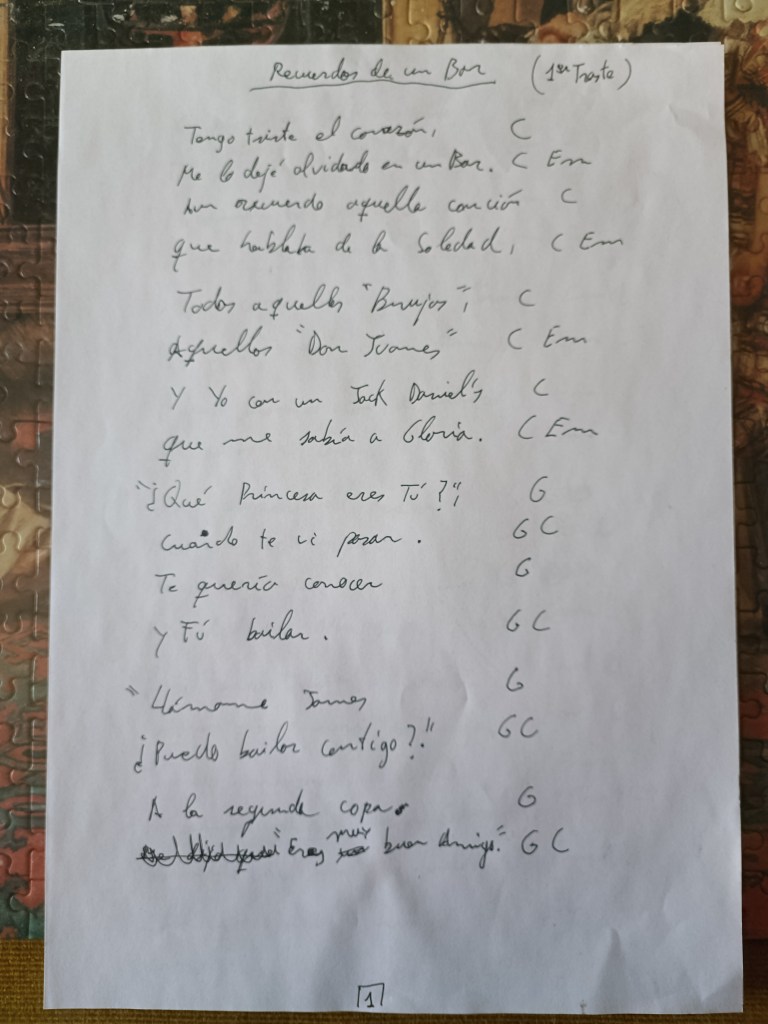 Recuerdos de un Bar (1er Traste)
Tengo triste el corazón, C
Me lo dejé olvidado en un Bar. C Em
Aun recuerdo aquella canción C
que hablaba de la Soledad, C Em
Todos aquellos "Brujos", C
Aquellos "Don Juanes" C Em
Y Yo con un Jack Daniel's C
que me sabía a Gloria. C Em
"¿Qué Princesa eres Tú?", G
Cuando te vi pasar. G C
Te quería conocer G
y Tú bailar. G C
"Llámame James G
¿Puedo bailar contigo?." G C
A la segunda copa G
"Eres muy buen Amigo." G C
1